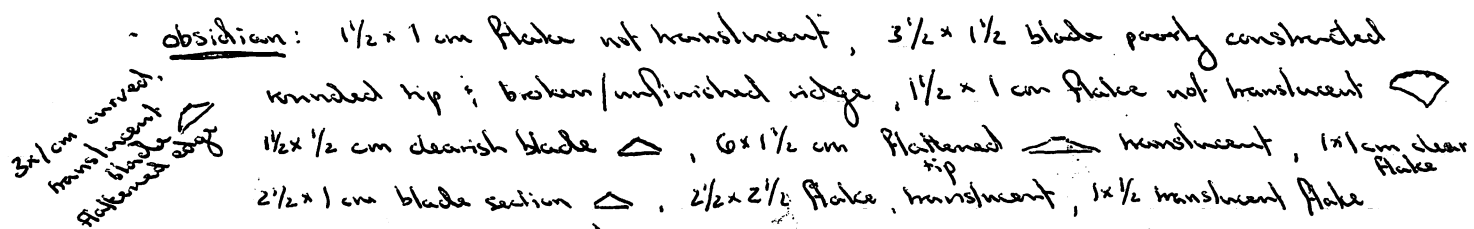 - obsidian: 1 1/2 x 1 cm flake not translucent, 3 1/2 x 1 1/2 blade poorly constructed
rounded tip & broken/unfinished ridge, 1 1/2 x 1 cm flake not translucent
1 1/2 x 1/2 cm clearish blade, 6 x 1 1/2 cm flattened tip translucent, 1x1 cm clear flake
2 1/2 x 1 cm blade section, 2 1/2 x 2 1/2 flake, translucent, 1 x 1/2 translucent flake
3x1 cm curved,
translucent
blade
flattened edge